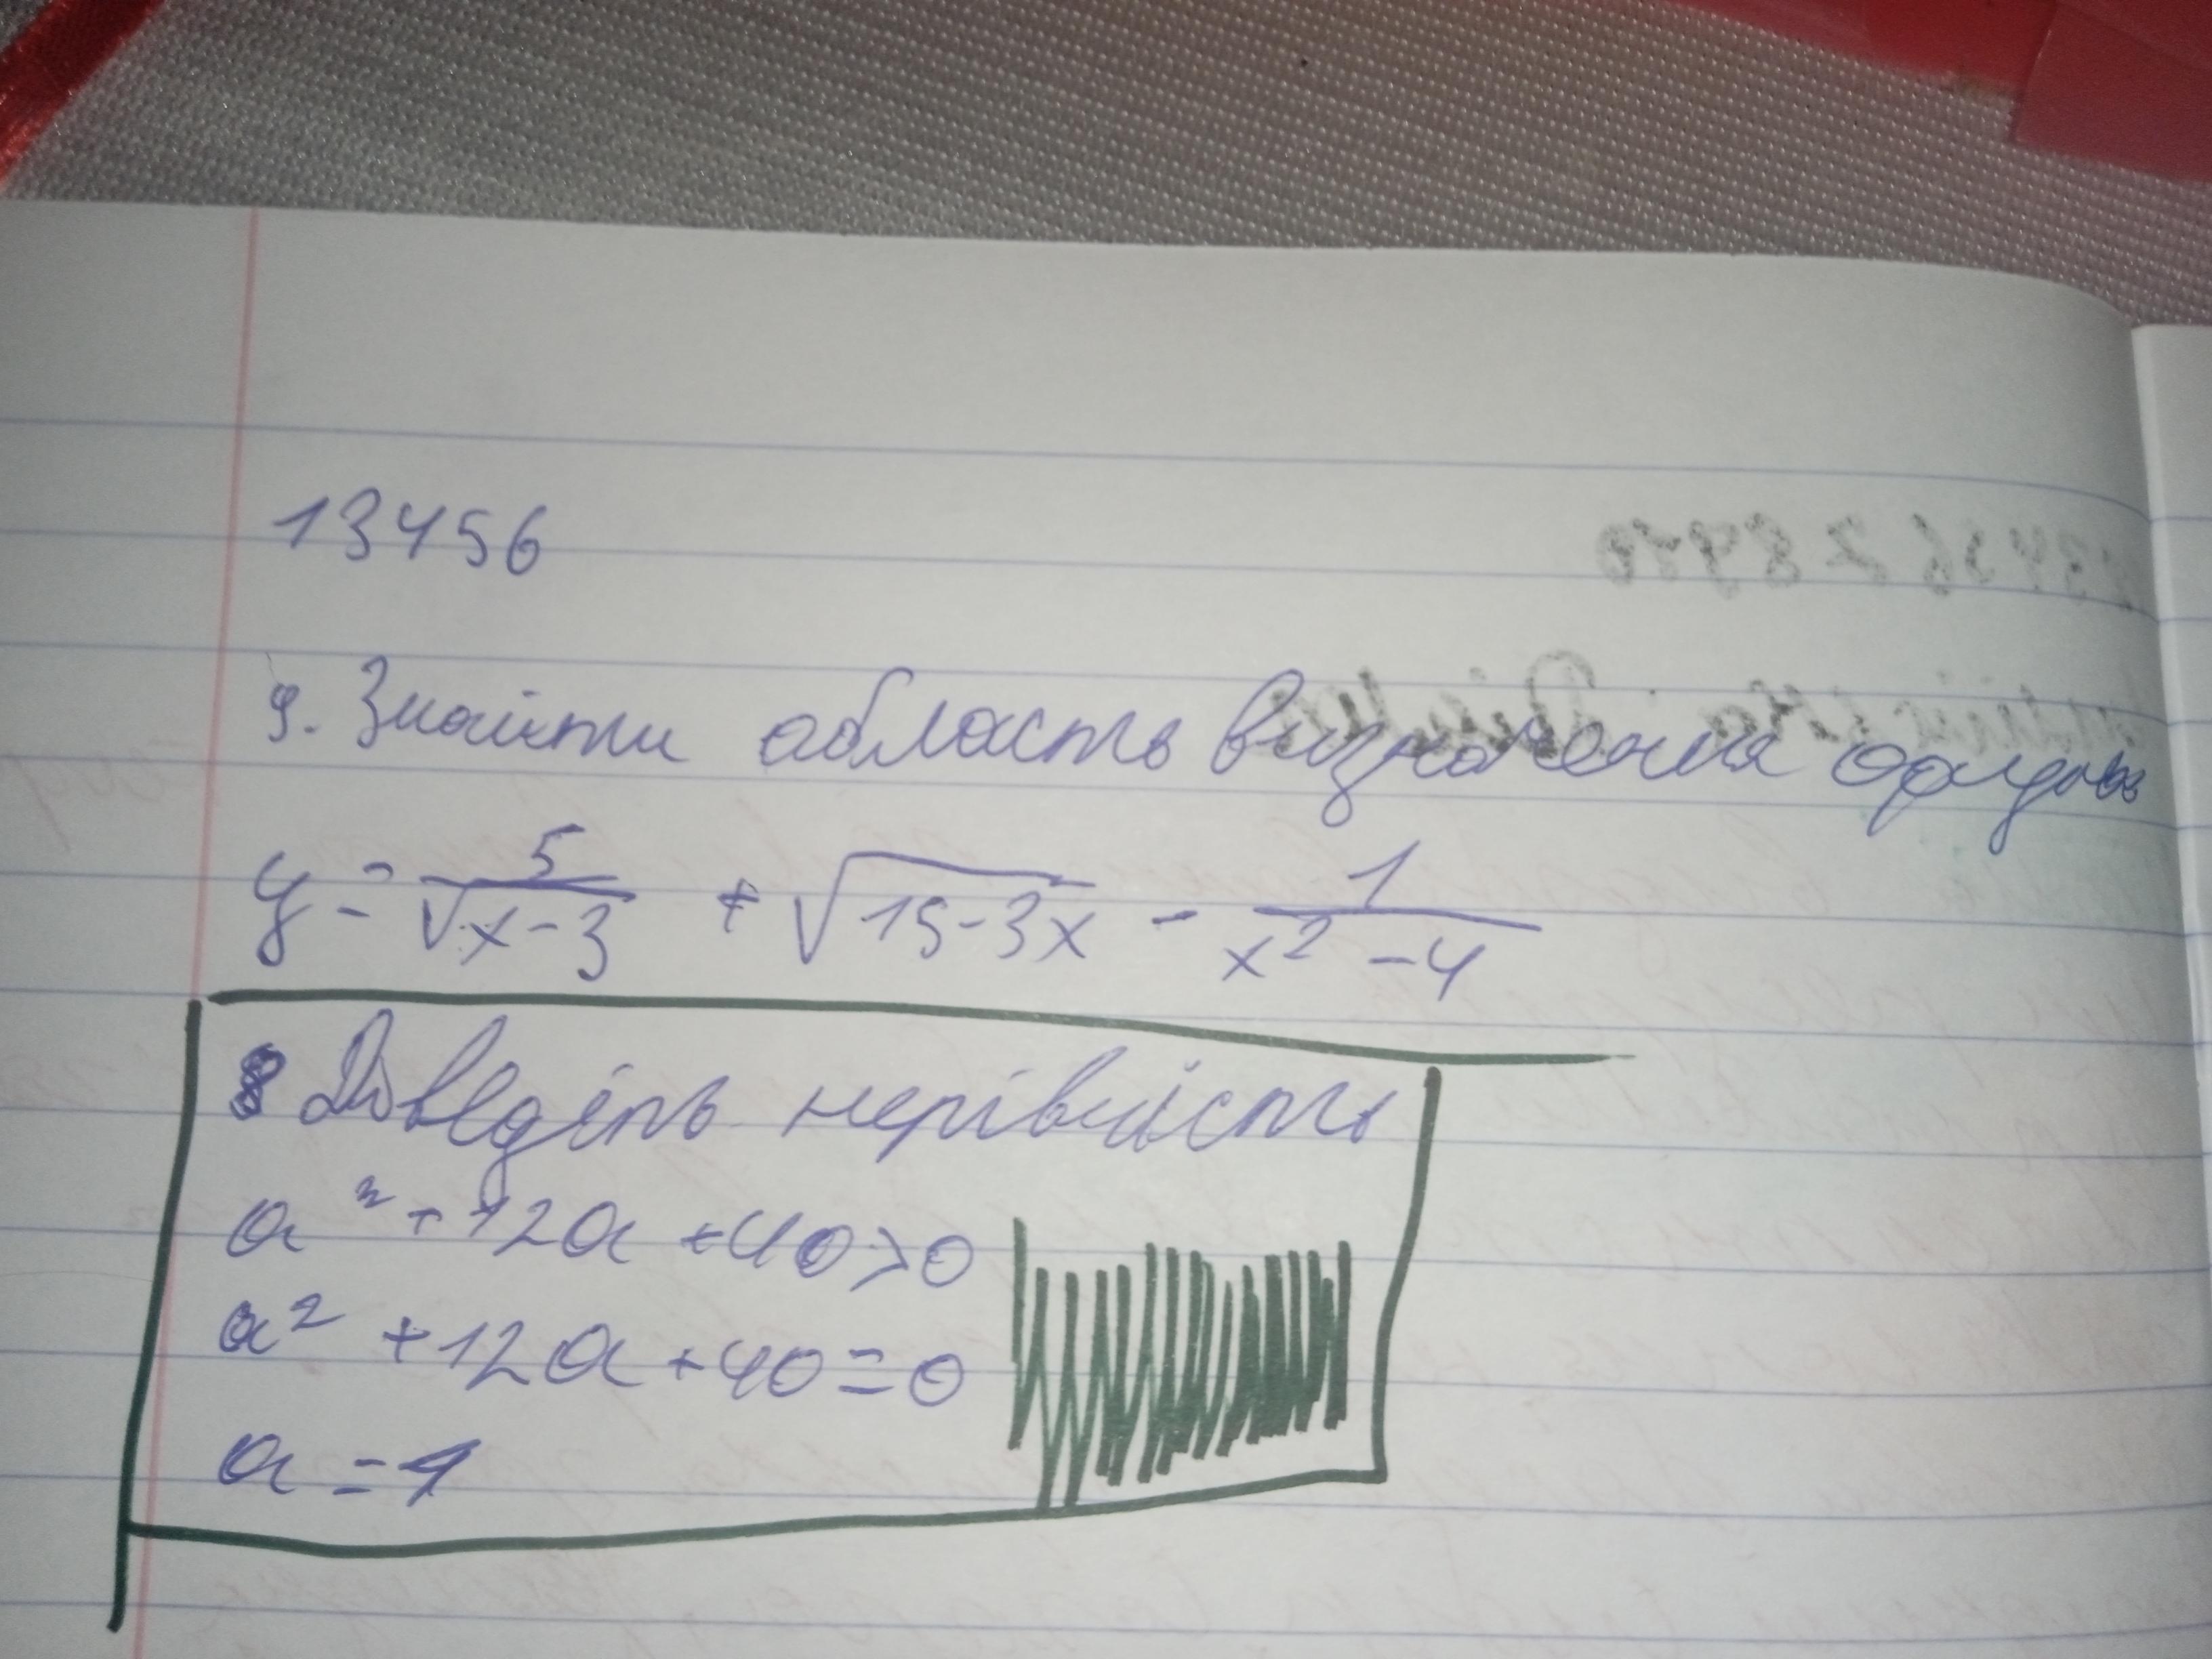 13456
9. Знайти область визначення
y = 5/√x-3 + √15-3x - 1/x² -4
8 Доведіть нерівність
a² + 12a + 40>0
a² + 12a + 40=0
a =